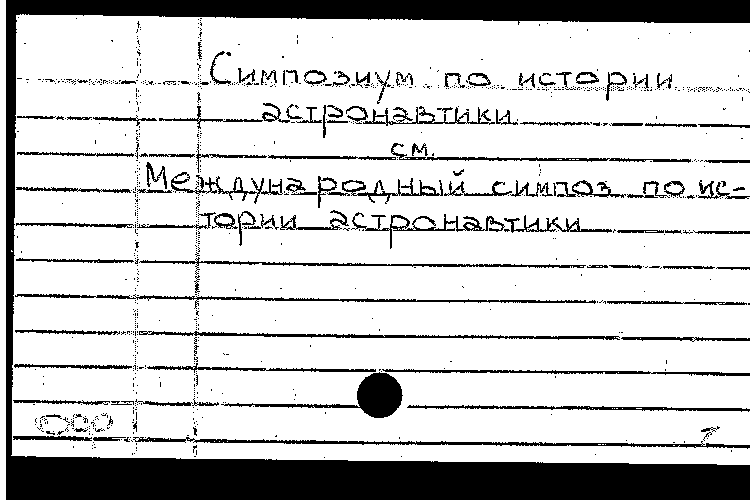 Симпозиум по истории
астронавтики
см.
Международный симпоз по ис-
тории астронавтики